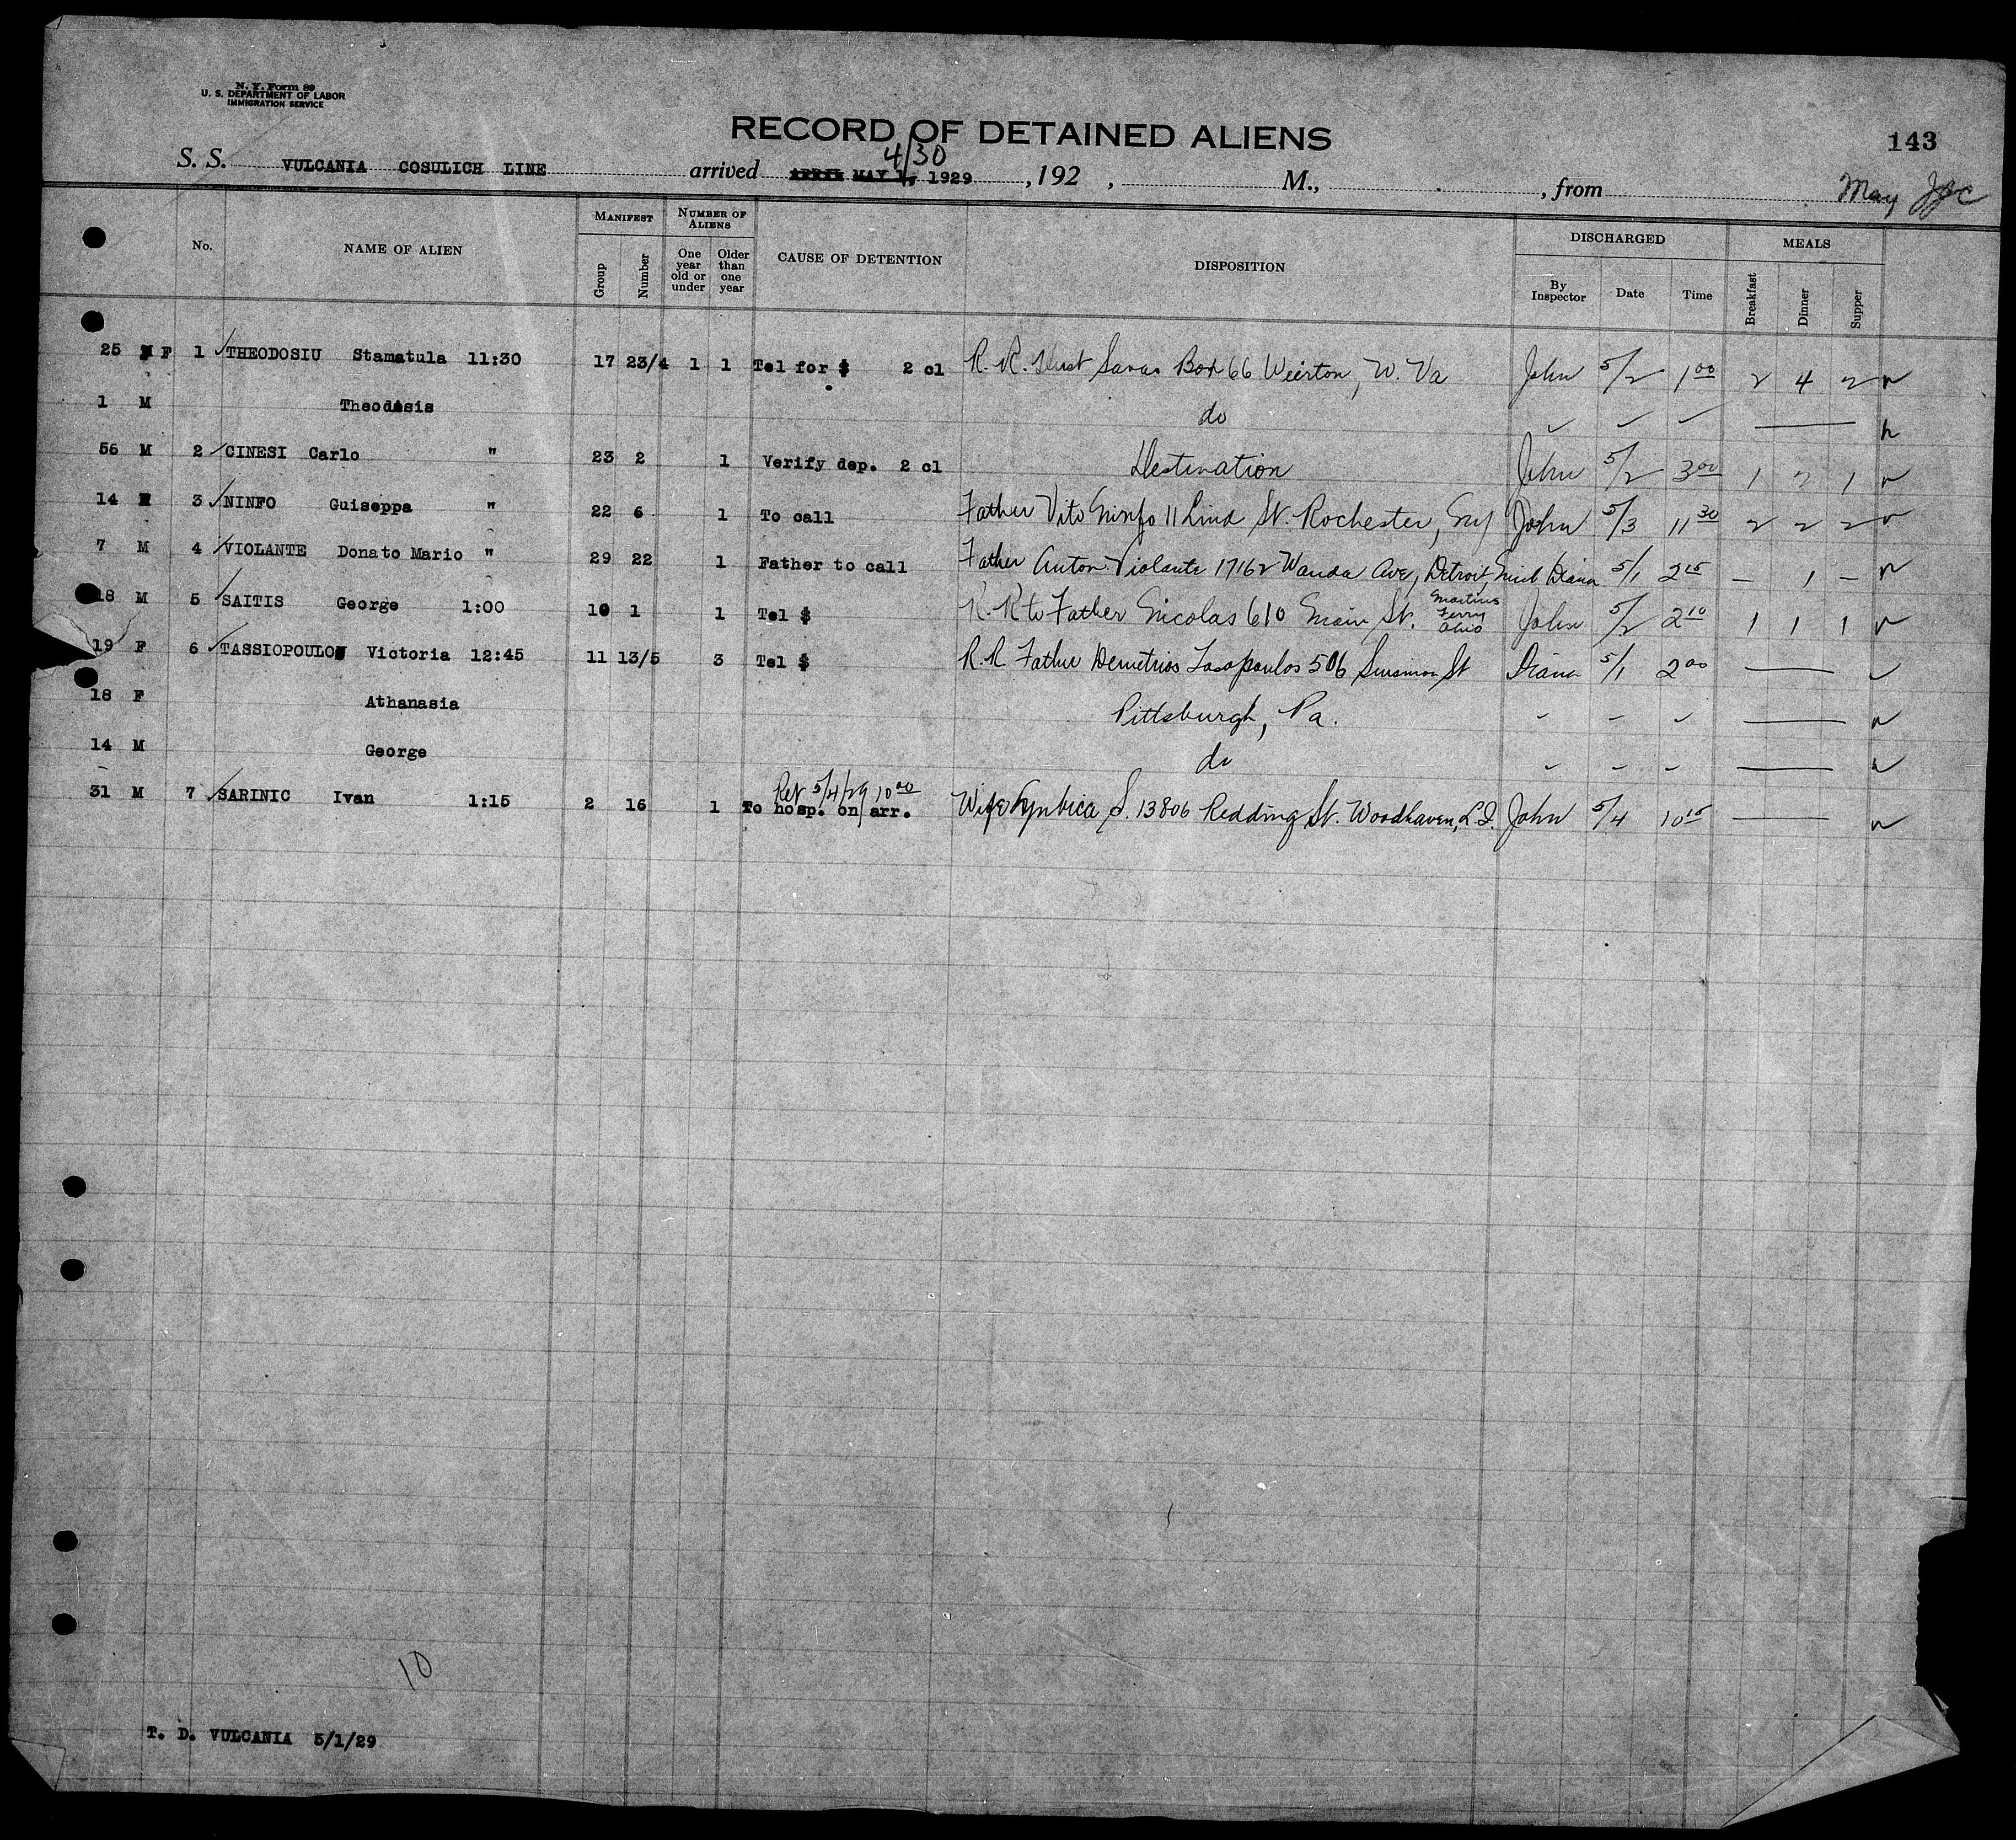 N. Y. Form 89
U. S. DEPARTMENT OF LABOR
IMMIGRATION SERVICE
RECORD OF DETAINED ALIENS
143
S. S. VULCANIA COSULICH LINE arrived APRIL MAY 1, 1929 4/30 , 192 , M., , from May
No. NAME OF ALIEN MANIFEST Group Number NUMBER OF ALIENS One year old or under Older than one year CAUSE OF DETENTION DISPOSITION DISCHARGED By Inspector Date Time MEALS Breakfast Dinner Supper
25 F 1 THEODOSIU Stamatula 11:30 17 23/4 1 1 Tel for $ 2 cl R. R. Savas Box 66 Weirton, W. Va John 5/2 1 00 2 4 2
1 M Theodosis do
56 M 2 CINESI Carlo " 23 2 1 Verify dep. 2 cl Destination John 5/2 3 00 1 2 1
14 3 NINFO Guiseppa " 22 6 1 To call Father Vito Ninfo 11 Lind St. Rochester, NY John 5/3 11 30 2 2 2
7 M 4 VIOLANTE Donato Mario " 29 22 1 Father to call Father Anton Violante 17162 Wanda Ave, Detroit, Mich Diana 5/1 2 15 – 1 –
18 M 5 SAITIS George 1:00 10 1 1 Tel $ R. R to Father Nicolas 610 Main St. Martins Ferry Ohio John 5/2 2 10 1 1 1
19 F 6 TASSIOPOULOU Victoria 12:45 11 13/5 3 Tel $ R. R Father Demetrios Tasopoulos 506 St Diana 5/1 2 00
18 F Athanasia Pittsburgh, Pa.
14 M George do
31 M 7 SARINIC Ivan 1:15 2 16 1 To hosp. on arr. Ret 5/4/29 10 00 Wife S. 13806 Redding St. Woodhaven, L.I. John 5/4 10 15
10
T. D. VULCANIA 5/1/29